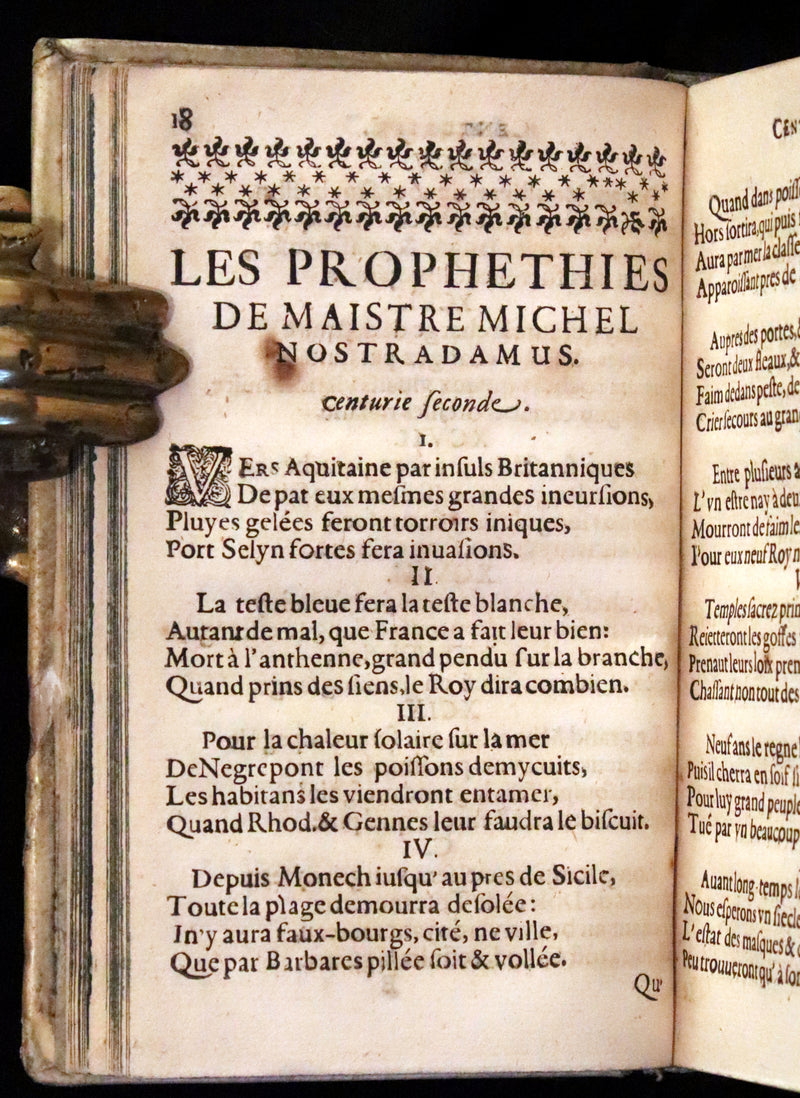 18
LES PROPHETHIES
DE MAISTRE MICHEL
NOSTRADAMUS.
centurie ſeconde.
I.
VERS Aquitaine par inſuls Britanniques
De pat eux meſmes grandes incurſions,
Pluyes gelées feront torroirs iniques,
Port Selyn fortes fera inuaſions.
II.
La teſte bleue fera la teſte blanche,
Autant de mal, que France a fait leur bien:
Mort à l'anthenne, grand pendu ſur la branche,
Quand prins des ſiens, le Roy dira combien.
III.
Pour la chaleur ſolaire ſur la mer
DeNegrepont les poiſſons demycuits,
Les habitans les viendront entamer,
Quand Rhod. & Gennes leur faudra le biſcuit.
IV.
Depuis Monech iuſqu' au pres de Sicile,
Toute la plage demourra deſolée:
In'y aura faux-bourgs, cité, ne ville,
Que par Barbares pillée ſoit & vollée.
Qu'
CEN
Quand dans poiſſ
Hors ſortira, qui puis
Aura par mer la claſſe
Apparoiſſant pres de
Aupres des portes, &
Seront deux fleaux, &
Faim dedans peſte, de
Crier ſecours au gran
Entre pluſieurs
L'vn eſtre nay à deu
Mourront de faim le
Pour eux neuf Roy n
Temples ſacrez prin
Reietteront les goffes
Prenaut leurs loix pren
Chaſſant non tout des
Neuf ans le regne
Puis il cherra en ſoif ſi
Pour luy grand peuple
Tué par vn beaucoup
Auant long-temps
Nous eſperons vn ſiecle
L'eſtat des maſques &
Peu trouueront qu' à ſon